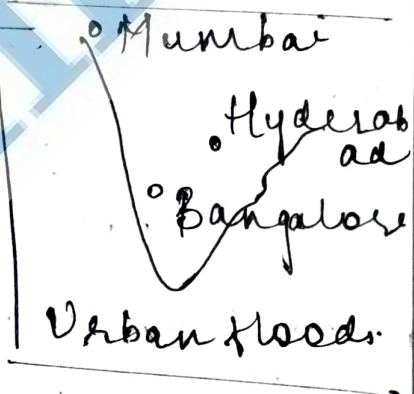 Mumbai
Hyderab
ad
Bangalore
Urban floods.